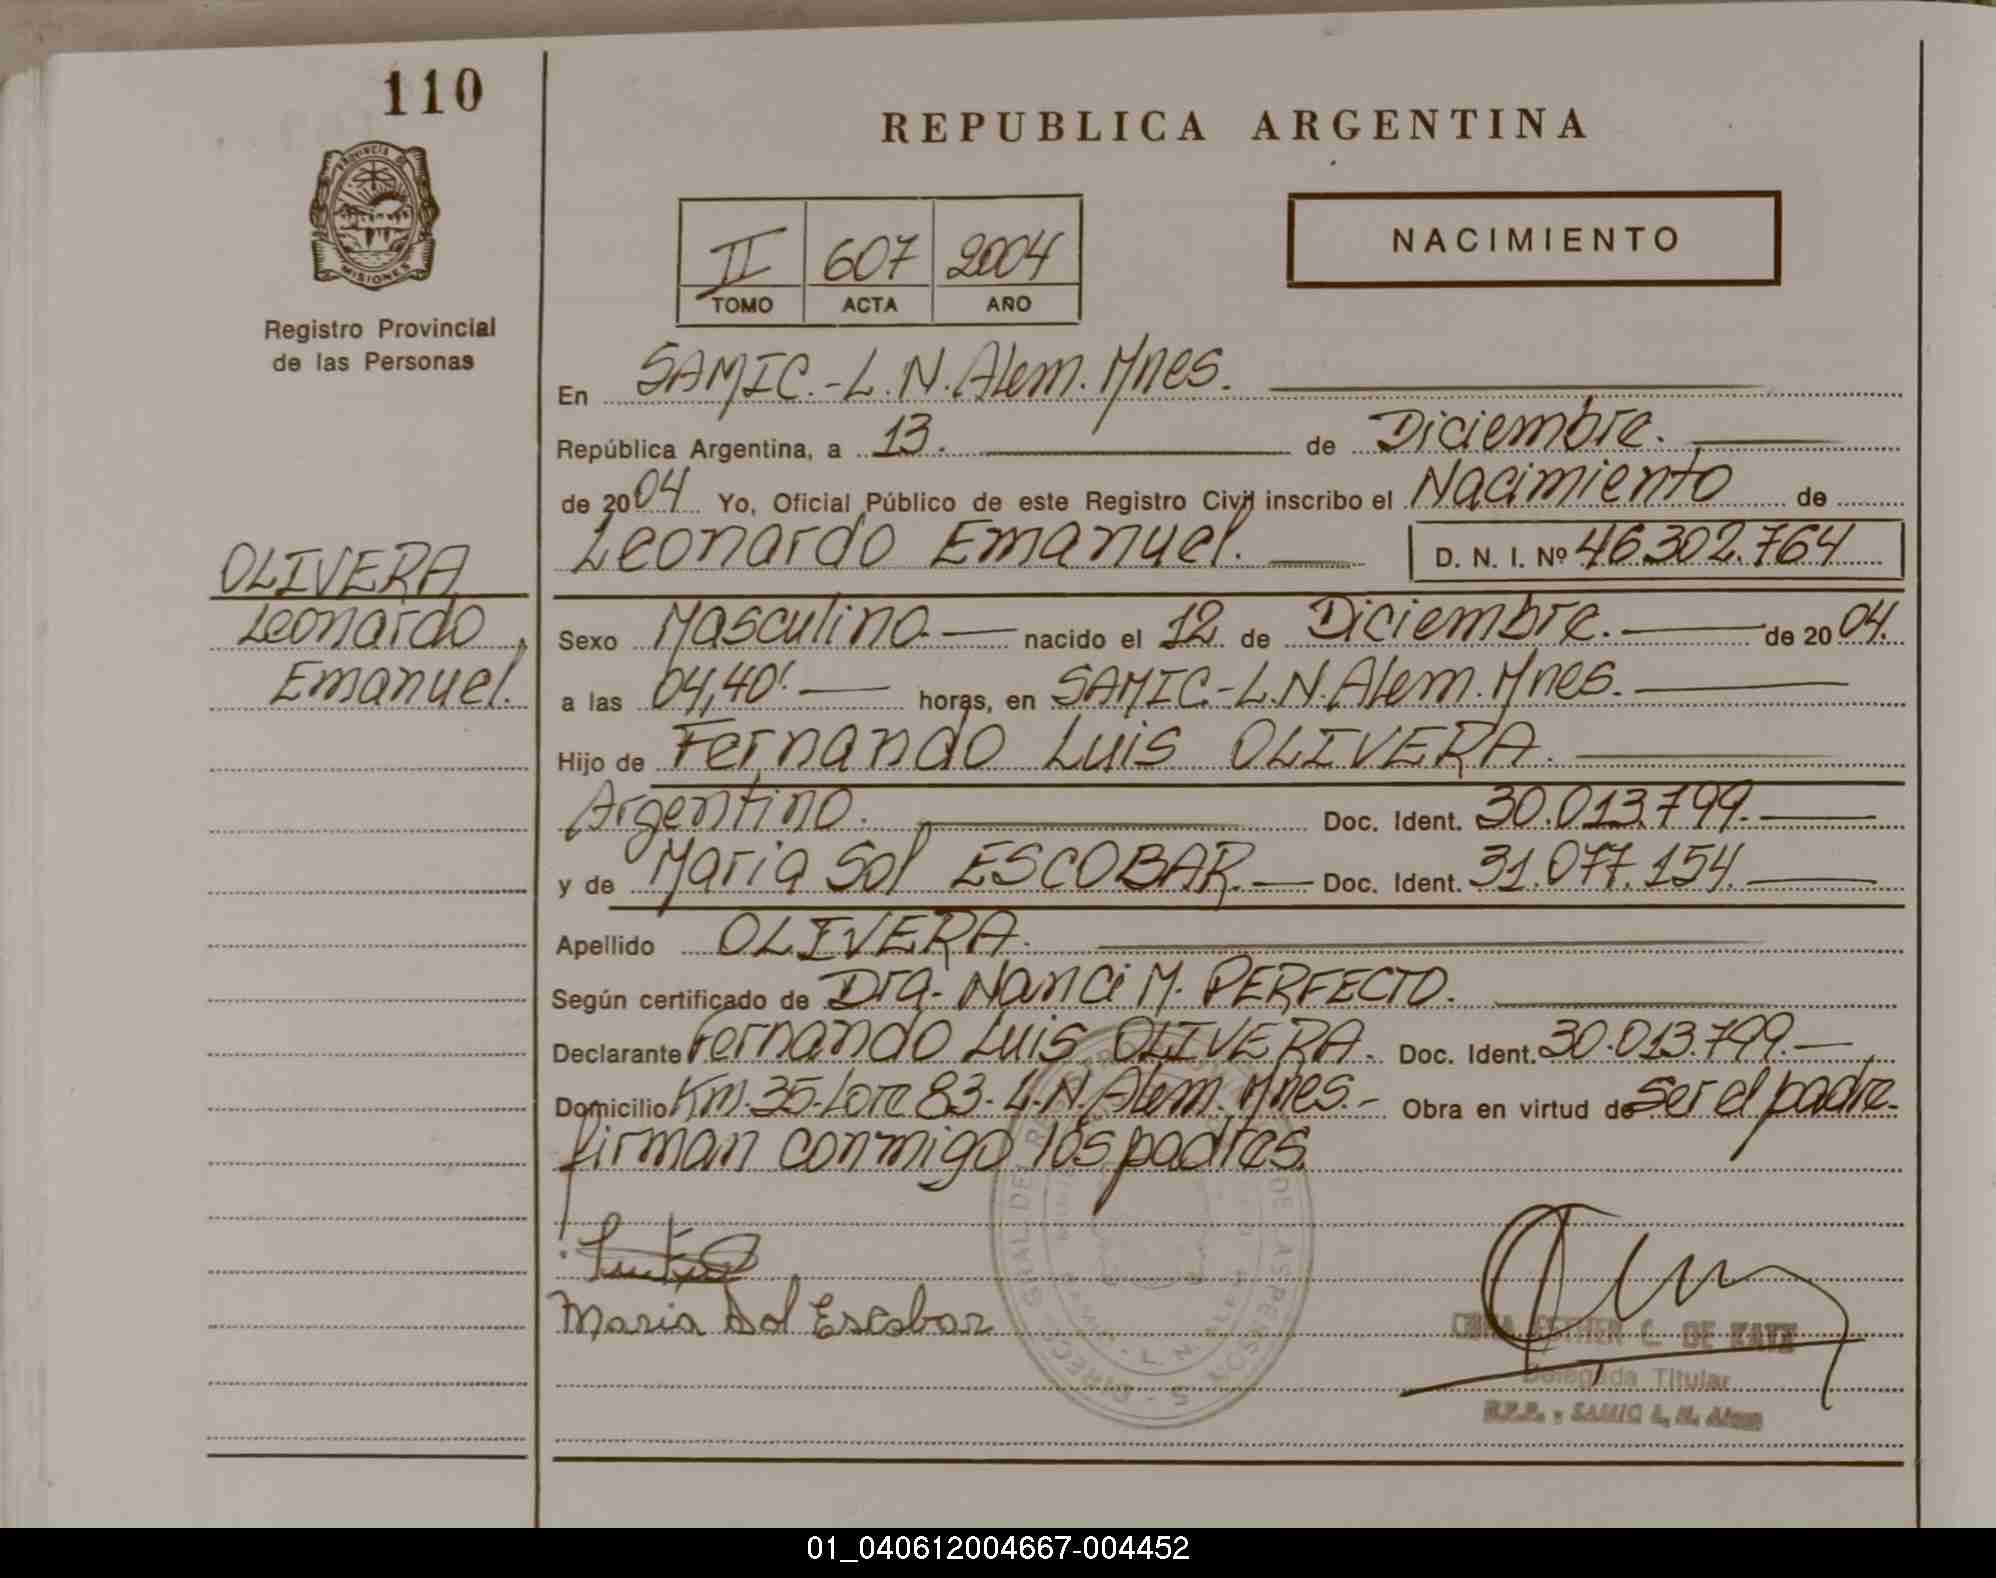 110
REPUBLICA ARGENTINA
PROVINCIA DE
MISIONES
Registro Provincial
de las Personas
NACIMIENTO
II 607 2004
TOMO ACTA AÑO
En SAMIC.-L.N.Alem.Mnes.
República Argentina, a 13. de Diciembre.
de 2004 Yo, Oficial Público de este Registro Civil inscribo el Nacimiento de
Leonardo Emanuel. D. N. I. Nº 46.302.764
OLIVERA
Leonardo
Emanuel.
Sexo Masculino.- nacido el 12 de Diciembre. de 2004.
a las 04,40'. horas, en SAMIC.-L.N.Alem.Mnes.
Hijo de Fernando Luis OLIVERA.
Argentino. Doc. Ident. 30.013.799.
y de Maria Sol ESCOBAR. Doc. Ident. 31.077.154.
Apellido OLIVERA.
Según certificado de Dra. Nanci M. PERFECTO.
Declarante Fernando Luis OLIVERA. Doc. Ident. 30.013.799.
Domicilio Km.35-Lote 83-L.N.Alem.Mnes.- Obra en virtud de ser el padre.
firman conmigo los padres.
Maria Sol Escobar
ESTHER C. DE KATZ
Delegada Titular
R.P.P. y SAMIC L. N. Alem
01_040612004667-004452